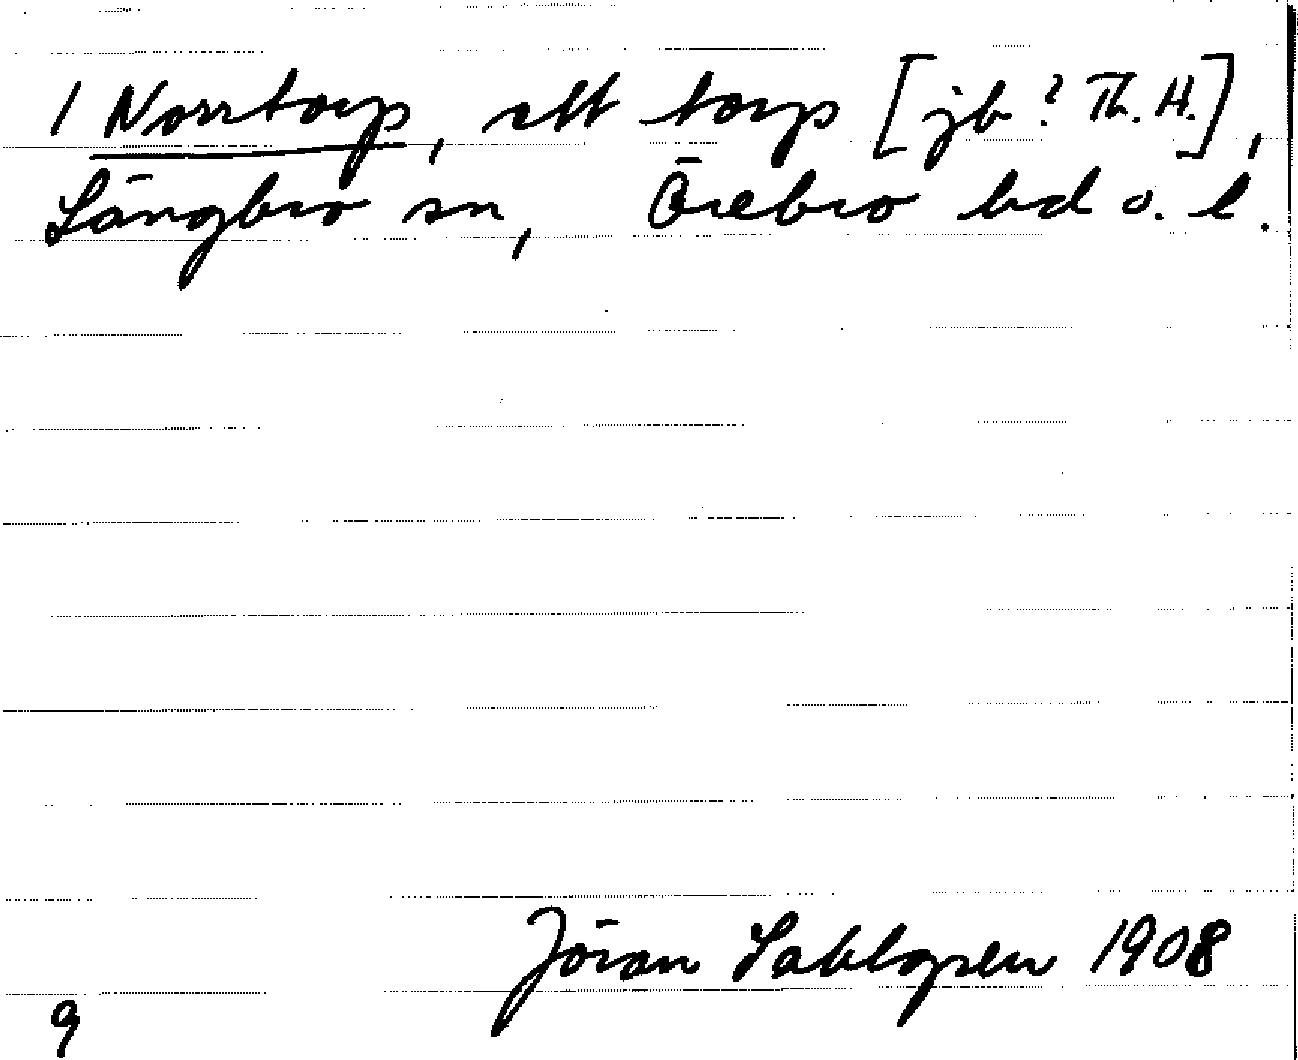 1 Norrtorp, ett torp [jb? Th. H.],
Långbro sn, Örebro hd o. l.
Jöran Sahlgren 1908
9